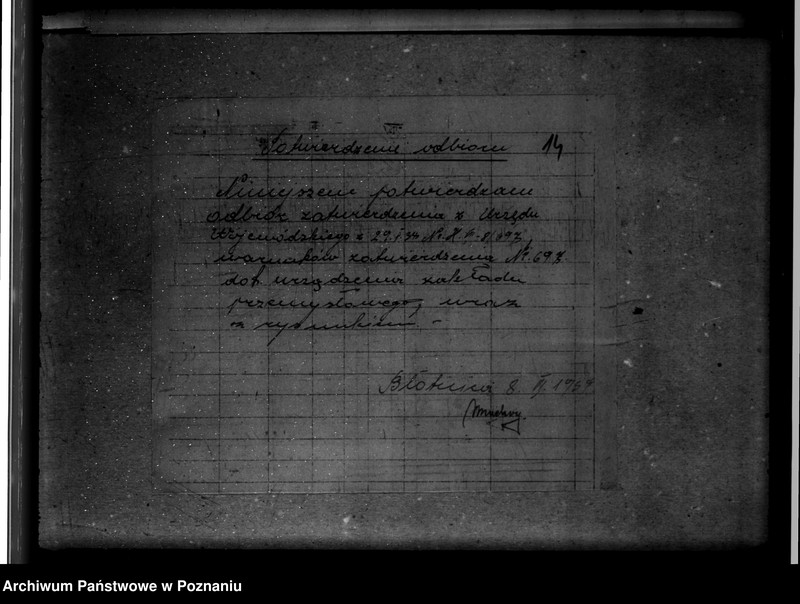 Potwierdzenie odbioru 14
Niniejszem potwierdzam
odbiór zatwierdzenia z Urzędu
Wojewódzkiego z 29.I 34 Nr.
warunków zatwierdzenia Nr. 697
dot. urządzenia zakładu
przemysłowego, wraz
z rysunkiem. -
Błotnica 8. II 1934
Archiwum Państwowe w Poznaniu